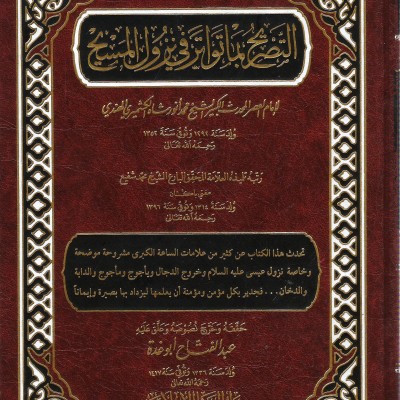 التصريح بما تواتر في نزول المسيح
لإمام العصر المحدث الكبير الشيخ محمد أنور شاه الكشميري الهندي
ولد سنة ١٢٩٢ وتوفي سنة ١٣٥٢
رحمه الله تعالى
رتبه تلميذه العلامة المحقق البارع الشيخ محمد شفيع
مفتي باكستان
ولد سنة ١٣١٤ وتوفي سنة ١٣٩٦
رحمه الله تعالى
تحدث هذا الكتاب عن كثير من علامات الساعة الكبرى مشروحة موضحة
وخاصة نزول عيسى عليه السلام وخروج الدجال ويأجوج ومأجوج والدابة
والدخان . . . فجدير بكل مؤمن ومؤمنة أن يعلمها ليزداد بها بصيرة وإيماناً
حققه وخرج نصوصه وعلق عليه
عبد الفتاح أبو غدة
ولد سنة ١٣٣٦ وتوفي سنة ١٤١٧
رحمه الله تعالى